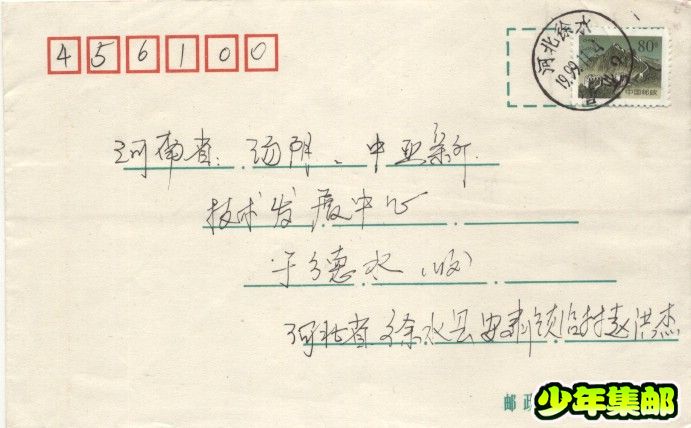 456100
河北徐水
80分
中国邮政
河南省 汤阴、中亚新
技术发展中心
于德水(收)
河北省徐水县安肃镇 村赵洪杰
邮政
少年集邮